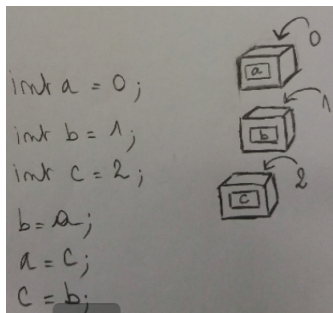 int a = 0;
int b = 1;
int c = 2;
b = a;
a = c;
c = b;
0
a
1
b
2
c